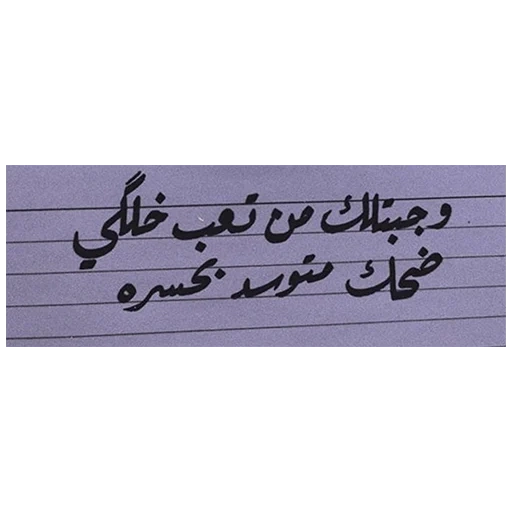 وجبتلك من تعب خلگي
ضحك متوسد بحسره